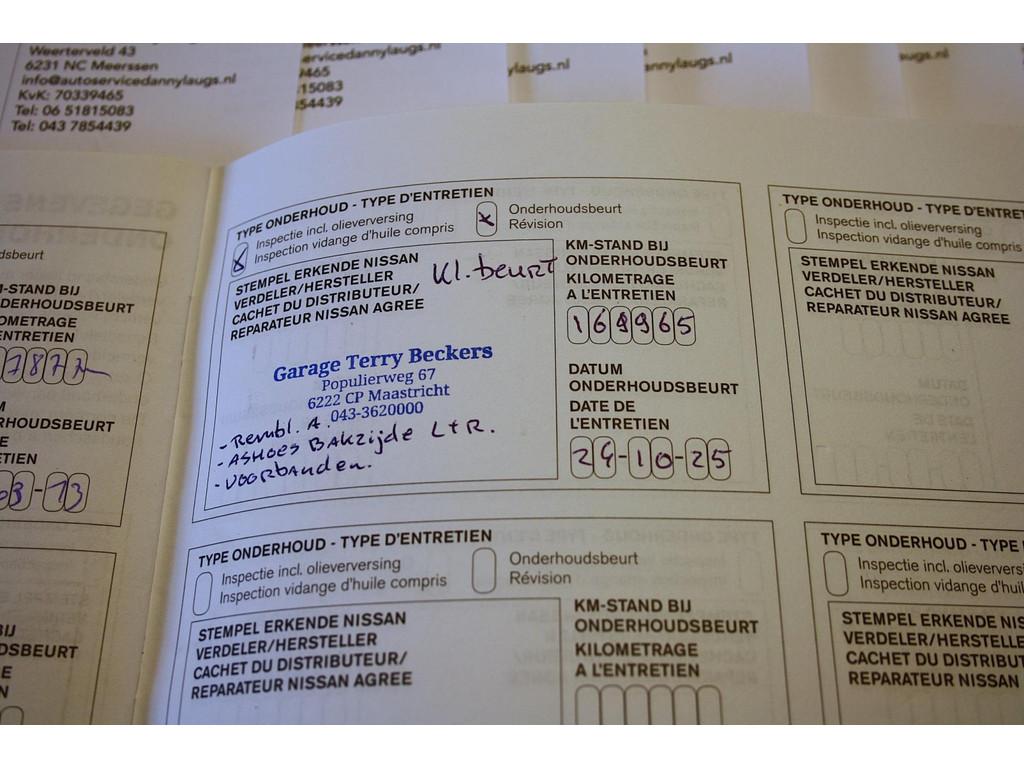 Weerterveld 43
6231 NC Meerssen
info@autoservicedannylaugs.nl
KvK: 70339465
Tel: 06 51815083
Tel: 043 7854439
ervicedannylaugs.nl
9465
51815083
854439
ylaugs.nl
annylaugs.nl
augs.nl
dsbeurt
M-STAND BIJ
DERHOUDSBEURT
OMETRAGE
ENTRETIEN
7877
M
RHOUDSBEURT
ETIEN
03-13
BIJ
DSBEURT
TYPE ONDERHOUD - TYPE D'ENTRETIEN
Inspectie incl. olieverversing
Inspection vidange d'huile compris
Onderhoudsbeurt
Révision
STEMPEL ERKENDE NISSAN
VERDELER/HERSTELLER
CACHET DU DISTRIBUTEUR/
REPARATEUR NISSAN AGREE
Kl. beurt
Garage Terry Beckers
Populierweg 67
6222 CP Maastricht
043-3620000
- Rembl. A.
- ASHOES BAKZIJDE L+R.
- VOORBANDEN.
KM-STAND BIJ
ONDERHOUDSBEURT
KILOMETRAGE
A L'ENTRETIEN
DATUM
ONDERHOUDSBEURT
DATE DE
L'ENTRETIEN
24-10-25
TYPE ONDERHOUD - TYPE D'ENTRET
Inspectie incl. olieverversing
Inspection vidange d'huile compris
STEMPEL ERKENDE NISSAN
VERDELER/HERSTELLER
CACHET DU DISTRIBUTEUR/
REPARATEUR NISSAN AGREE
TYPE ONDERHOUD - TYPE D'ENTRETIEN
Inspectie incl. olieverversing
Inspection vidange d'huile compris
Onderhoudsbeurt
Révision
STEMPEL ERKENDE NISSAN
VERDELER/HERSTELLER
CACHET DU DISTRIBUTEUR/
REPARATEUR NISSAN AGREE
KM-STAND BIJ
ONDERHOUDSBEURT
KILOMETRAGE
A L'ENTRETIEN
TYPE ONDERHOUD - TYPE
Inspectie incl. olieverversi
Inspection vidange d'huile
STEMPEL ERKENDE NIS
VERDELER/HERSTELLE
CACHET DU DISTRIBUT
REPARATEUR NISSAN